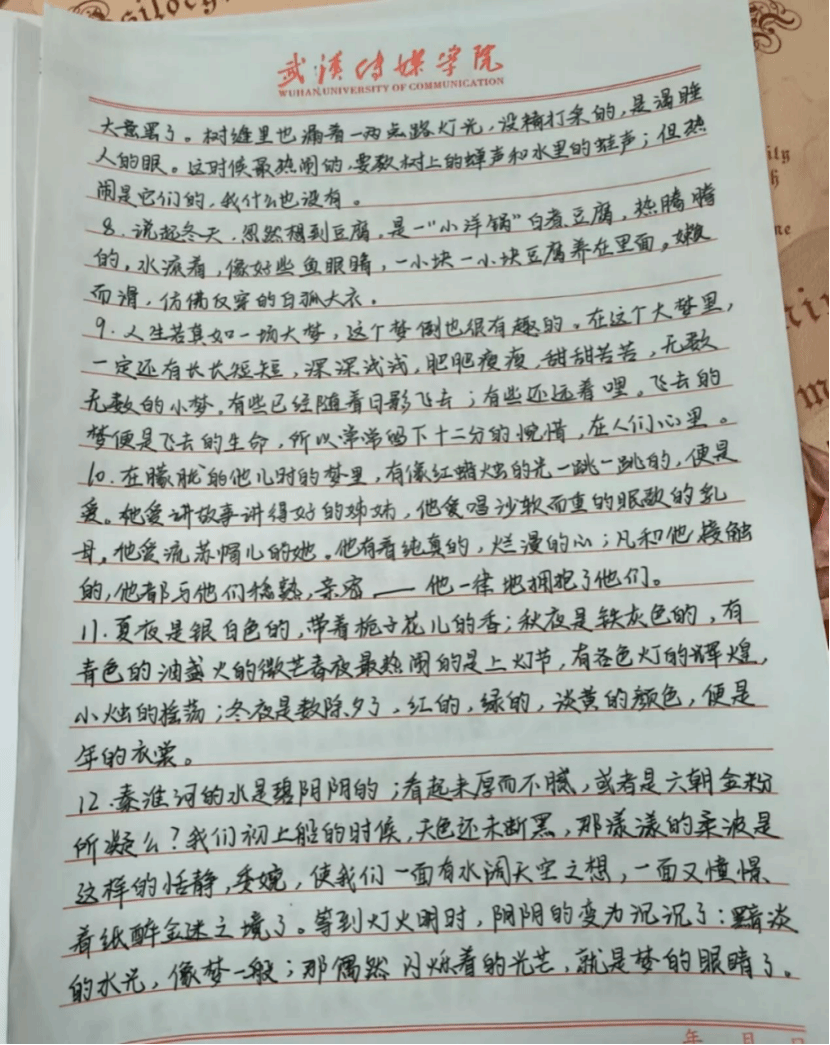 武汉传媒学院
WUHAN UNIVERSITY OF COMMUNICATION
大意罢了。树缝里也漏着一两点路灯光，没精打采的，是渴睡
人的眼。这时候最热闹的，要数树上的蝉声和水里的蛙声；但热
闹是它们的，我什么也没有。
8. 说起冬天，忽然想到豆腐，是一"小洋锅"白煮豆腐，热腾腾
的，水滚着，像好些鱼眼睛，一小块一小块豆腐养在里面，嫩
而滑，仿佛反穿的白狐大衣。
9. 人生若真如一场大梦，这个梦倒也很有趣的。在这个大梦里，
一定还有长长短短，深深浅浅，肥肥瘦瘦，甜甜苦苦，无数
无数的小梦，有些已经随着日影飞去；有些还远着哩。飞去的
梦便是飞去的生命，所以常常留下十二分的惋惜，在人们心里。
10. 在朦胧的他儿时的梦里，有像红蜡烛的光一跳一跳的，便是
爱。他爱讲故事讲得好的姊姊，他爱唱沙软而重的眠歌的乳
母，他爱流苏帽儿的她。他有着纯真的，烂漫的心；凡和他接触
的，他都与他们稔熟，亲密——他一律地拥抱了他们。
11. 夏夜是银白色的，带着栀子花儿的香；秋夜是铁灰色的，有
青色的油盏火的微芒春夜最热闹的是上灯节，有各色灯的辉煌，
小烛的摇荡；冬夜是数除夕了，红的，绿的，淡黄的颜色，便是
年的衣裳。
12. 秦淮河的水是碧阴阴的；看起来厚而不腻，或者是六朝金粉
所凝么？我们初上船的时候，天色还未断黑，那漾漾的柔波是
这样的恬静，委婉，使我们一面有水阔天空之想，一面又憧憬
着纸醉金迷之境了。等到灯火明时，阴阴的变为沉沉了：黯淡
的水光，像梦一般；那偶然闪烁着的光芒，就是梦的眼睛了。
年 月 日